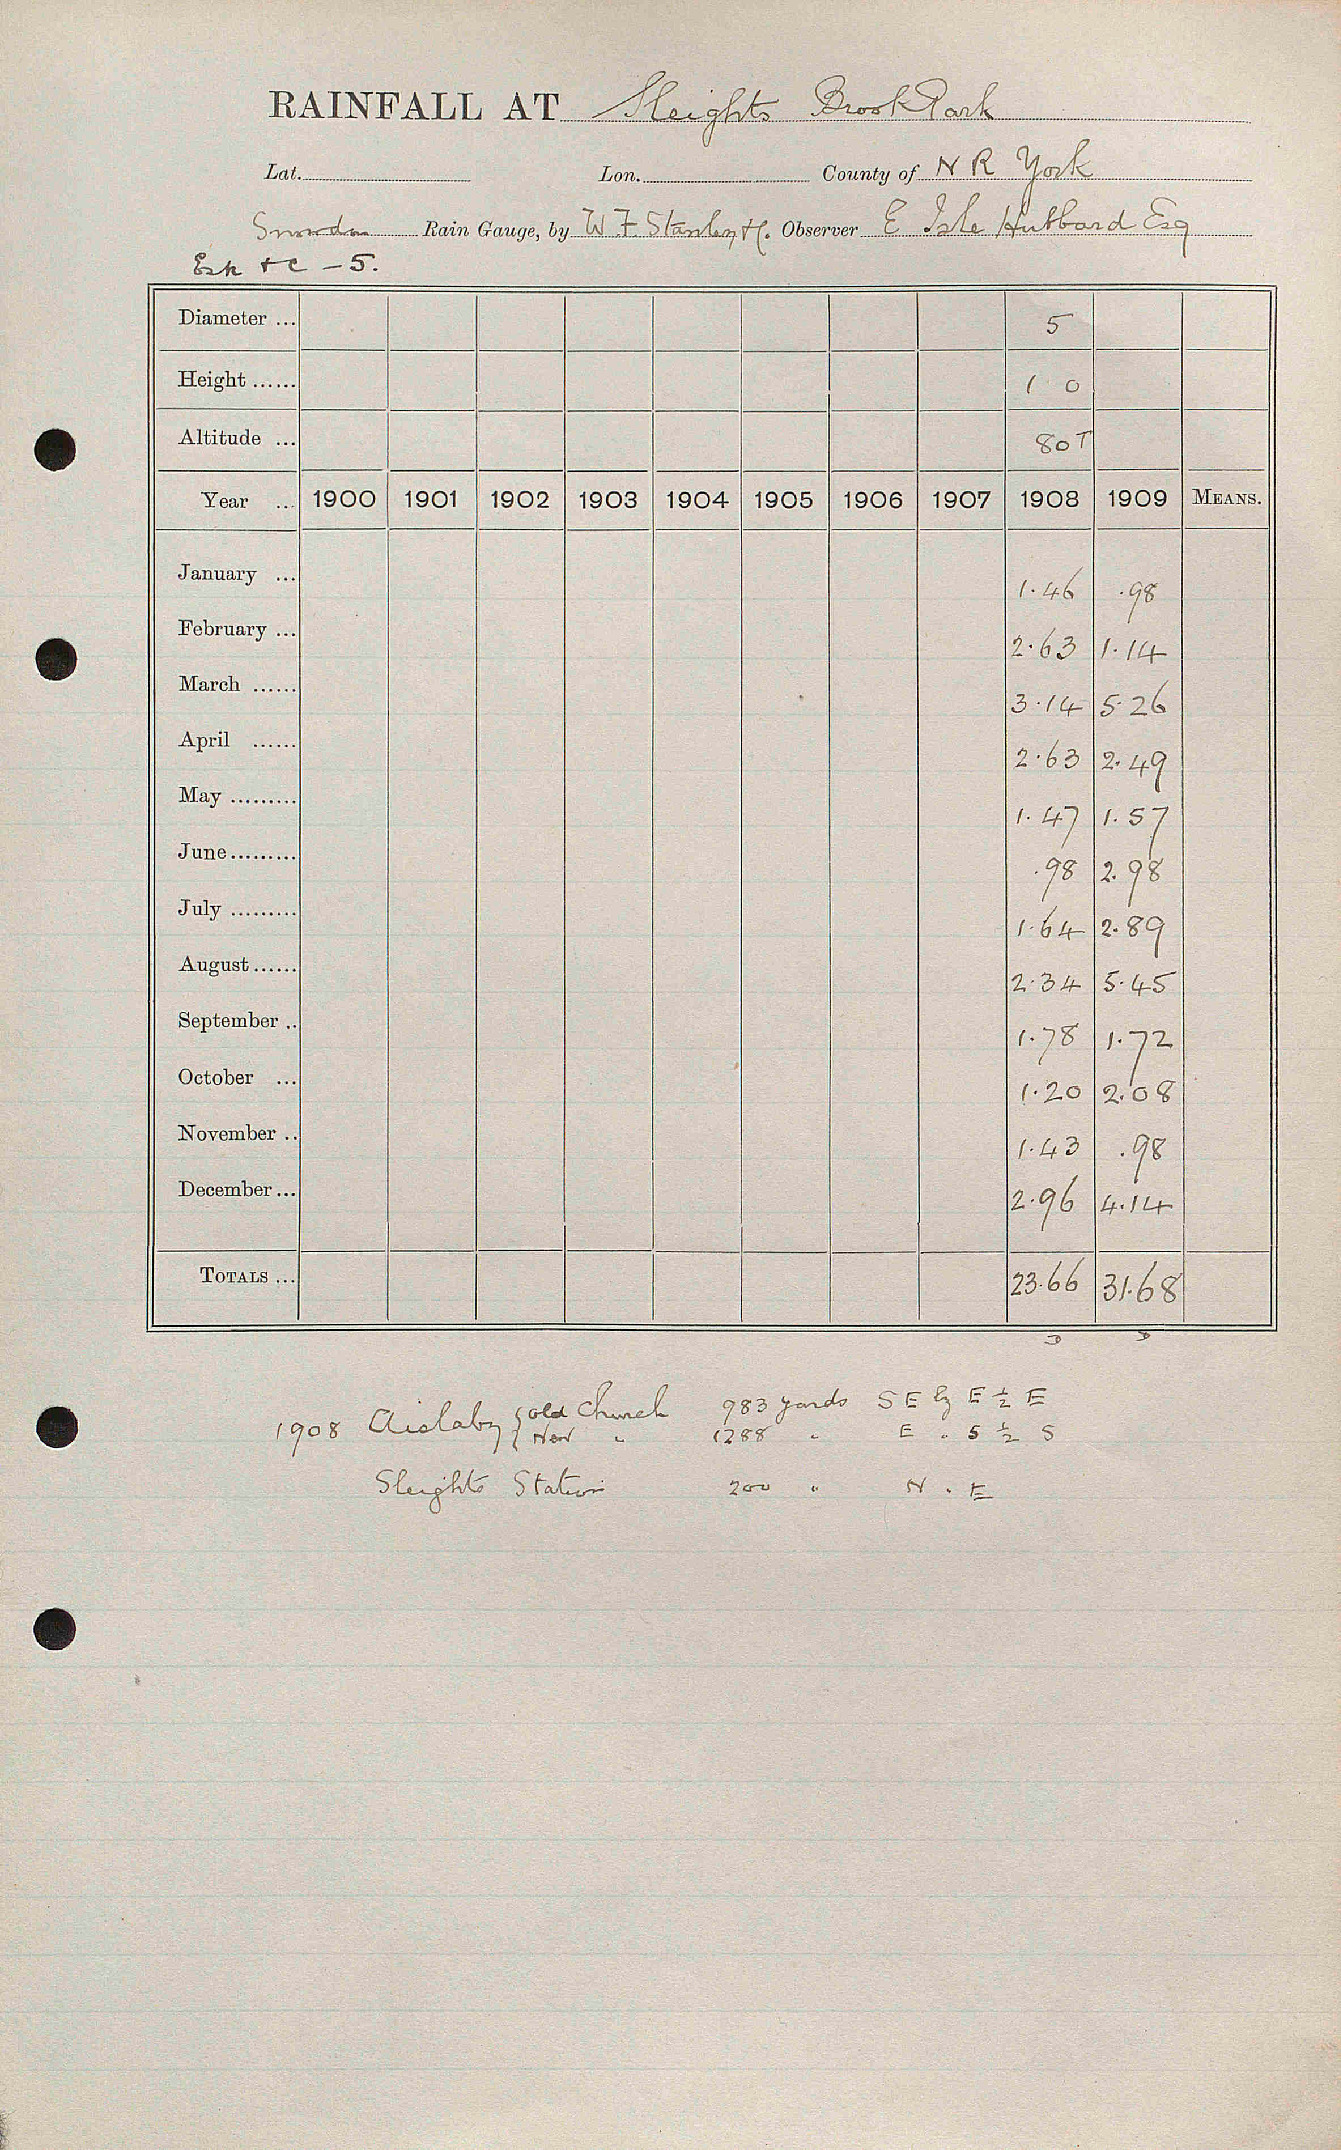 RAINFALL AT Sleights Brook Park
Lat. Lon. County of N R York
Snowdon Rain Gauge, by W F Stanley & C. Observer E Isle Hubbard Esq
Esk & c - 5.
Diameter ... 5
Height ...... 1 0
Altitude ... 80 T
Year ... 1900 1901 1902 1903 1904 1905 1906 1907 1908 1909 MEANS.
January ... 1.46 .98
February ... 2.63 1.14
March ...... 3.14 5.26
April ...... 2.63 2.49
May ......... 1.47 1.57
June ......... .98 2.98
July ......... 1.64 2.89
August ...... 2.34 5.45
September .. 1.78 1.72
October ... 1.20 2.08
November .. 1.43 .98
December ... 2.96 4.14
TOTALS ... 23.66 31.68
1908 Aislaby { old Church 983 yards S E by E ½ E
{ New " 1288 " E " S ½ S
Sleights Station 200 " N . E